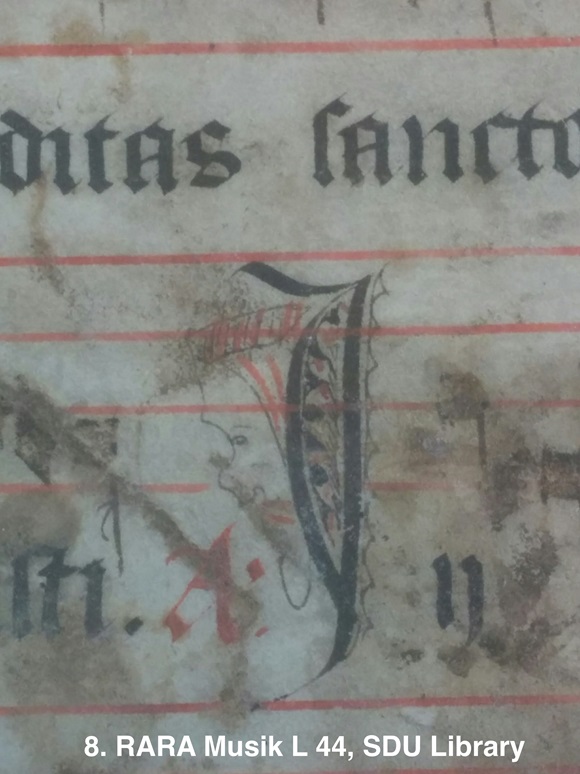 ditas sancto
sti. A: I ij
8. RARA Musik L 44, SDU Library